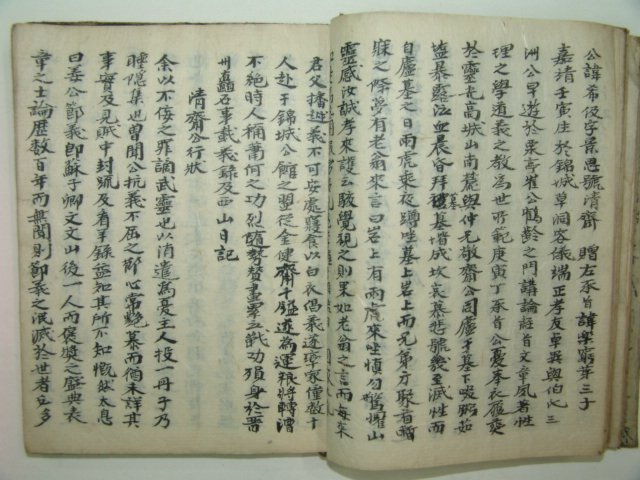 公諱希伋字景思號清齋 贈左承旨諱學窮第三子
嘉靖壬寅生於錦城草洞容儀端正孝友卓異與伯氏三
洲公早遊於栗亭崔公鶴齡之門講論經旨文章夙著性
理之學道義之教爲世所範庚寅丁承旨公憂奉衣履葬
於靈光高城山南麓與仲兄敬齋公同廬于墓下啜粥茹
鹽暴露泣血晨昏拜墓墓堦成坎哀慕悲號幾至滅性而
自廬墓之日兩虎乘夜蹲坐墓上岩上而兄弟牙聚着暫
寐之際夢有老翁來言曰岩上有兩虎來坐愼勿驚懼山
靈感汝誠孝來護云駭覺視之則果如老翁之言而每來
君父播遷義不可安處寢食以白衣倡義遂率家僮數十
人赴于錦城公館之盟從金健齋千鎰遂爲運粮將轉漕
不絶時人稱蕭何之功烈
殞身於晋
州矗石事載義錄及西山日記
清齋公行狀
余以不佞之罪謫武靈也以消遣爲憂主人投一冊子乃
睡隱集也曾聞公抗義不屈之節心常艶慕而猶未詳其
事實及見賊中封疏及看羊錄益知其所不知慨然太息
曰委公節義卽蘇子卿文文山後一人而褒奬之盛典表
章之士論歷數百年而無聞則節義之泯滅於世者亦多